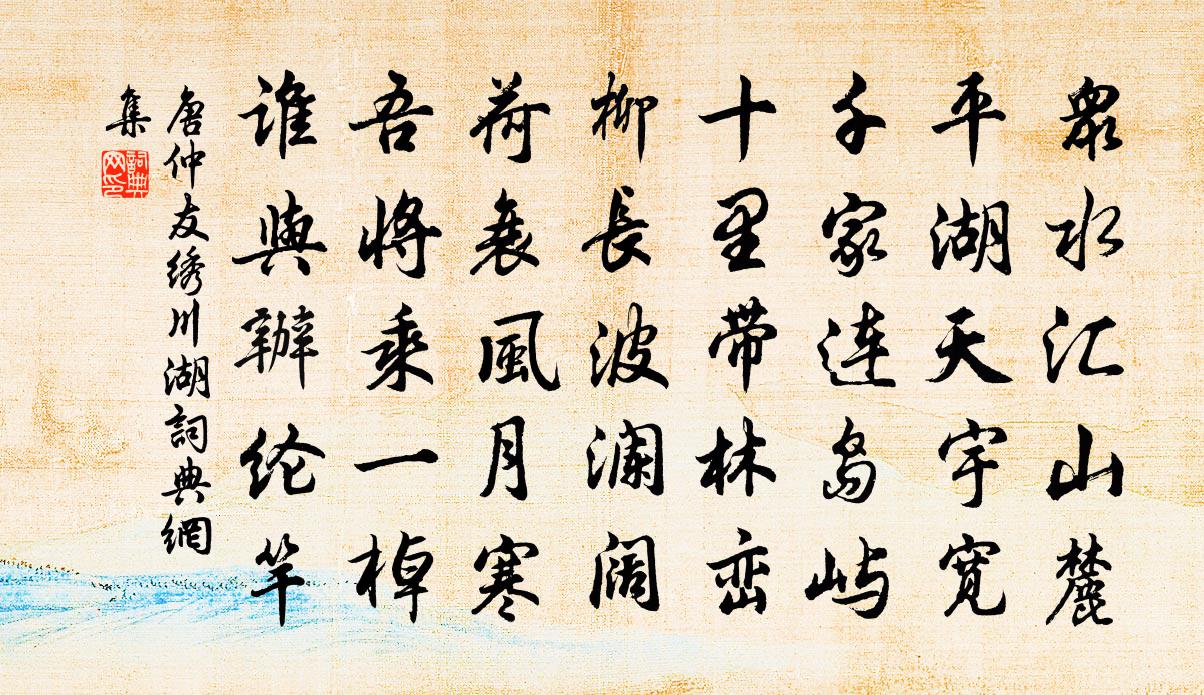 眾水汇山麓
平湖天宇寬
千家连岛屿
十里带林峦
柳長波澜阔
荷衰風月寒
吾將乘一棹
谁與辦纶竿
唐仲友绣川湖詞典網
集
詞典
网印